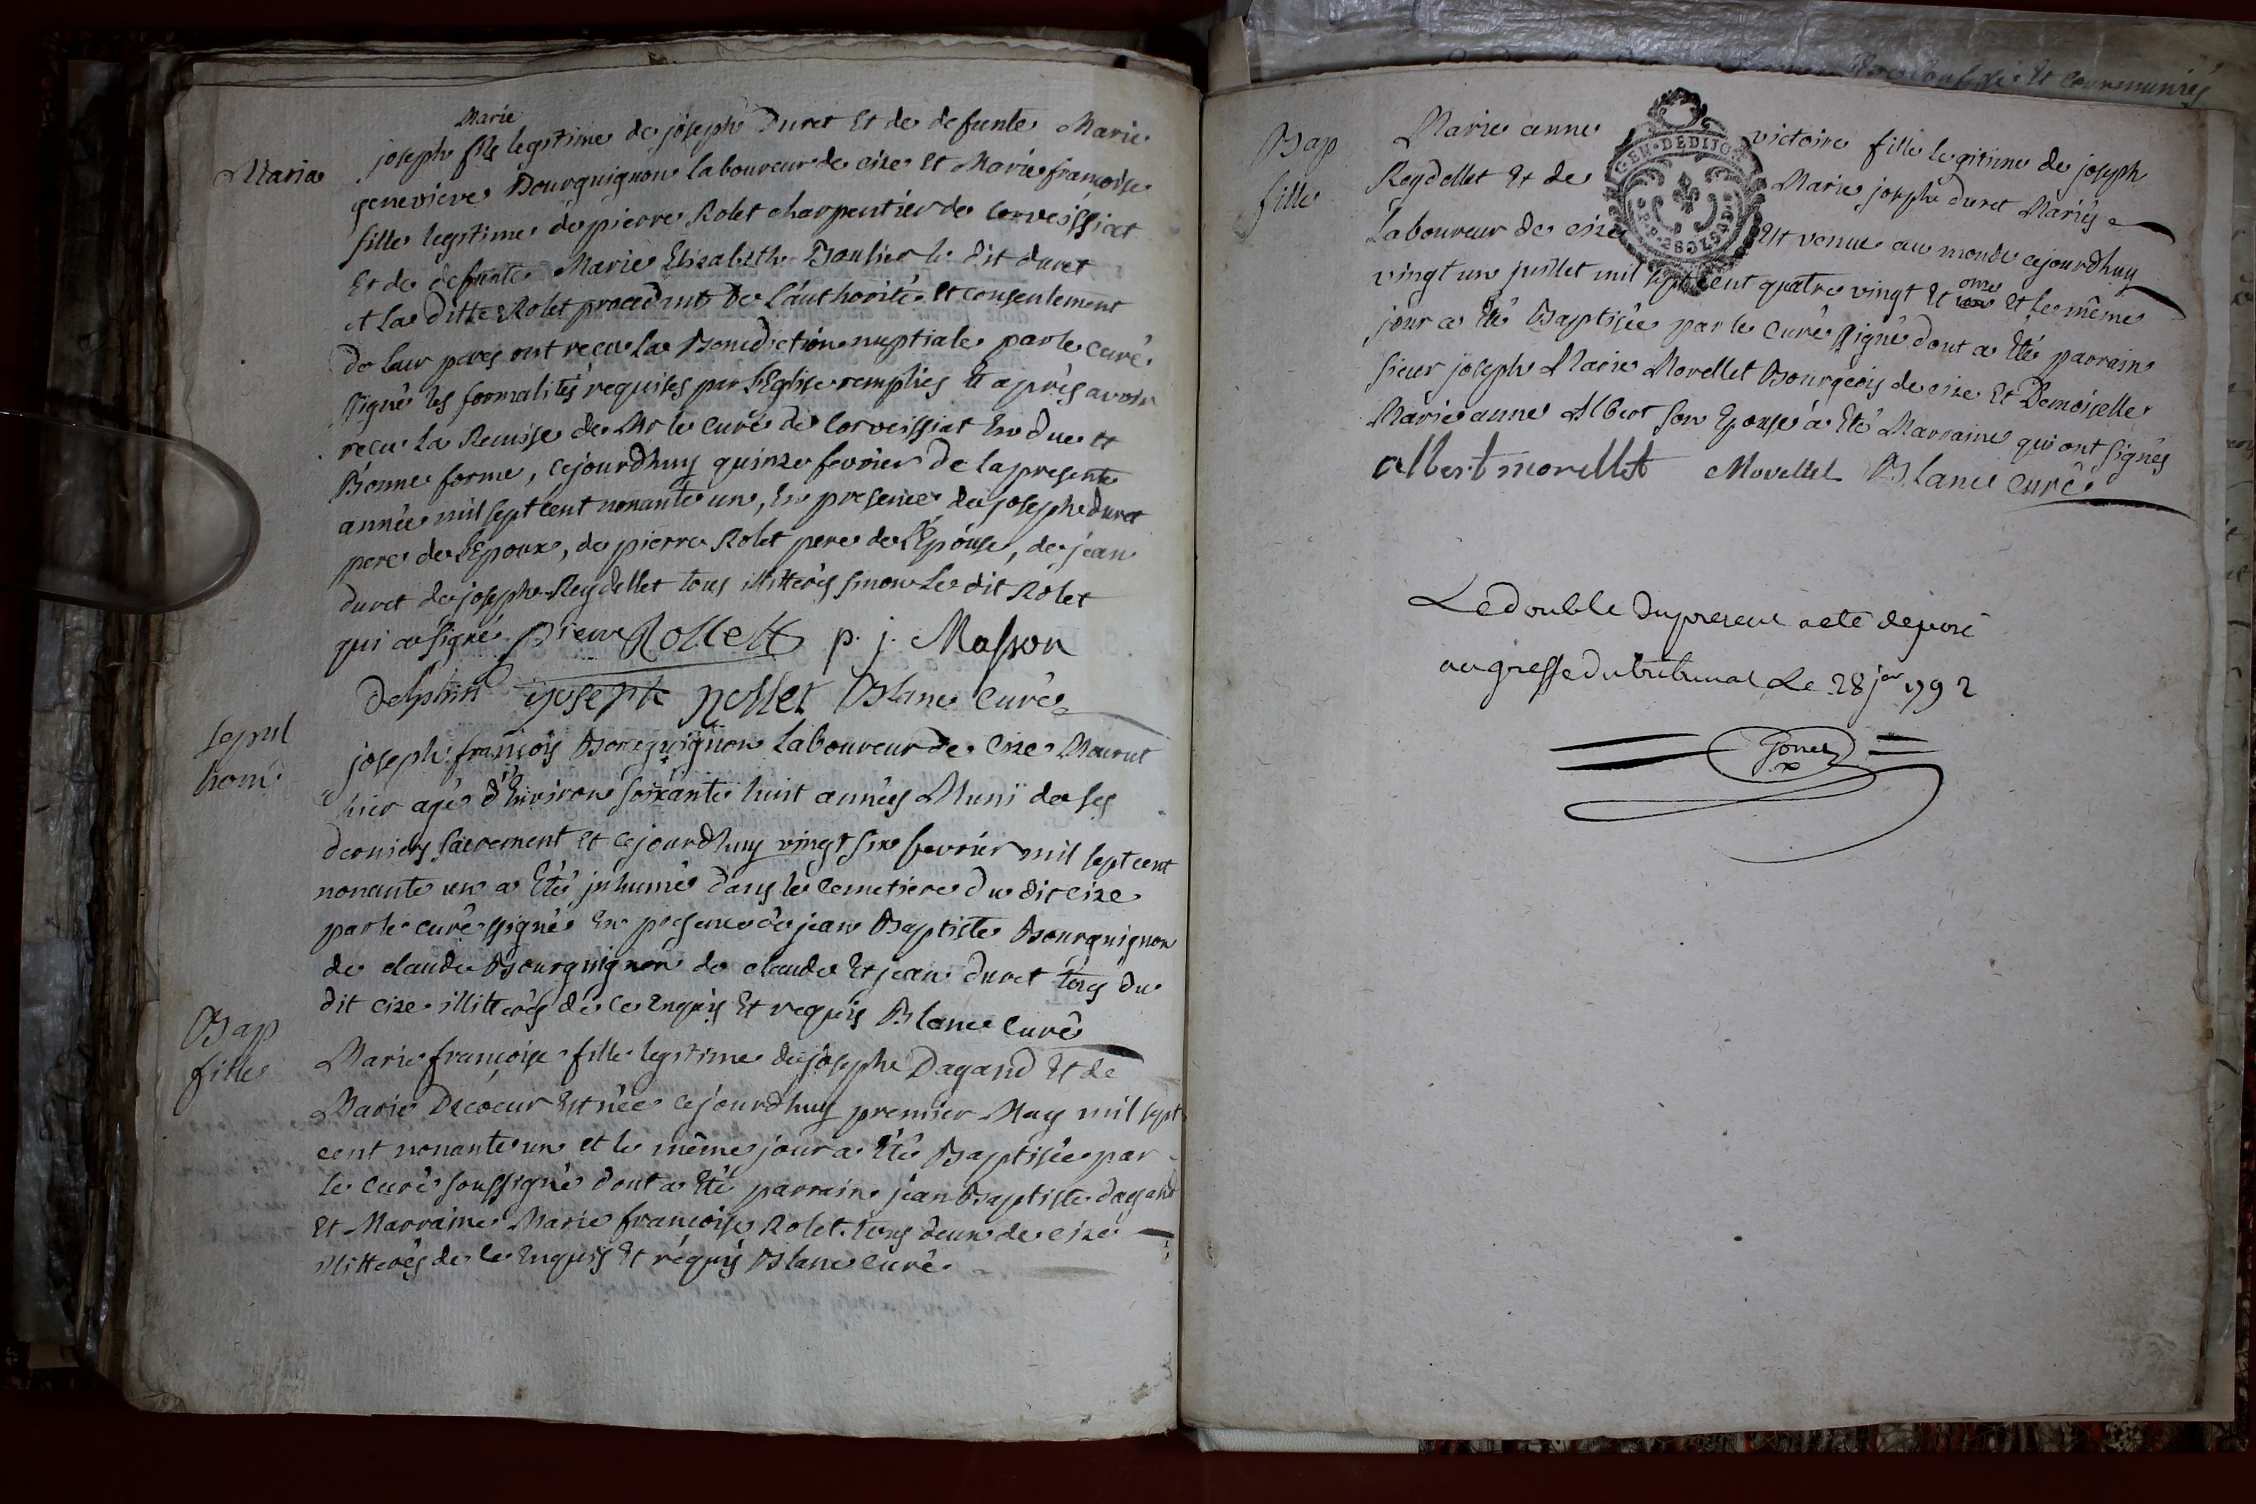 Maria
Marie
joseph fils legitime de joseph Duret Et de defunte Marie
genevieve Bourguignon laboureur de cize Et Marie francoise
fille legitime de pierre Rolet charpentier de Corveissiat
Et de defunte Marie Elisabeth Baulier le dit duret
et la ditte Rolet procedant de l'authorité Et consentement
de leur peres ont recu la Benediction nuptiale par le curé
ssigné les formalités requises par l'Eglise remplies Et après avoir
recu la Remise de Mr le curé de Corveissiat En due Et
Bonne forme, cejourdhuy quinze fevrier de la presente
année mil sept cent nonante un, En presence de joseph duret
pere de l'Epoux, de pierre Rolet pere de l'Epouse, de jean
duret de joseph Reydellet tous illitterés sinon Le dit Rolet
qui a signé Pierre Rollett p. j. Masson
Delphin joseph Rollet Blanc Curé
Sepul
hom
joseph françois Bourguignon Laboureur de Cize Mourut
hier agé d'Environ soixante huit années Muni de ses
derniers sacrement Et cejourdhuy vingt six fevrier mil sept cent
nonante un a Eté inhumé dans le cemetiere du dit cize
par le curé ssigné En presence de jean Baptiste Bourguignon
de claude Bourguignon de claude Et jean duret tous du
dit cize illitterés de ce Enquis Et requis Blanc Curé
Bap
fille
Marie françoise fille legitime de joseph Dagand Et de
Marie Decoeur Est née cejourdhuy premier May mil sept
cent nonante un et le même jour a Eté Baptisée par
le Curé soussigné dont a Eté parrain jean Baptiste dagand
Et Marraine Marie françoise Rolet tous deux de cize
illitterés de ce Enquis Et requis Blanc curé
Et communiés
Bap
fille
Marie anne victoire fille legitime de joseph
Reydellet Et de Marie joseph duret Mariés
Laboureur de cize Est venue au monde cejourdhuy
vingt un juillet mil sept cent quatre vingt Et onze Et le même
jour a Eté Baptisée par le Curé ssigné dont a Eté parrain
sieur joseph Marie Morellet Bourgeois de cize Et Demoiselle
Marie anne Albert son Epouse a Eté Marraine qui ont signés
albert morellet Morellet Blanc Curé
GEN. DE DIJON
Le double du present acte deposé
au greffe du tribunal Le 28 jer 1792